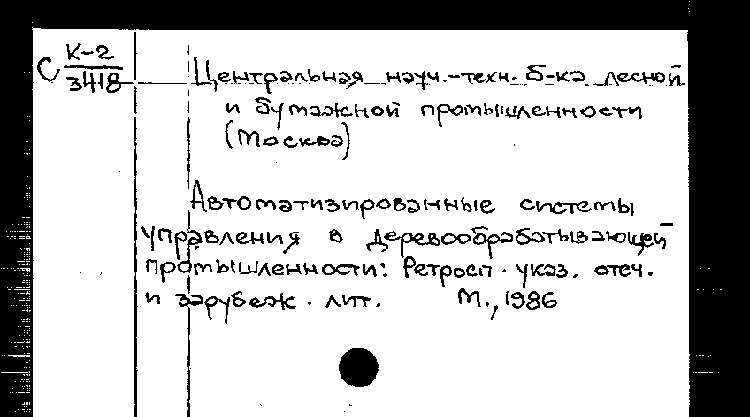 С К-2
3418
Центральная науч.-техн. б-ка лесной
и бумажной промышленности
(Москва)
Автоматизированные системы
управления в деревообрабатывающей
промышленности: Ретросп. указ. отеч.
и зарубеж. лит. М., 1986